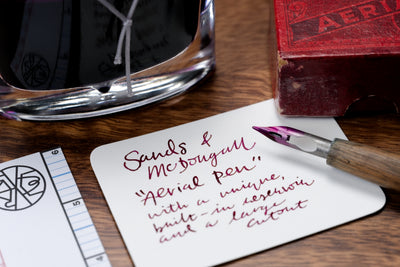 AERIAL
Sands &
McDougall
"Aerial Pen"
with a unique,
built-in reservoir
and a large
cutout
4
5
6